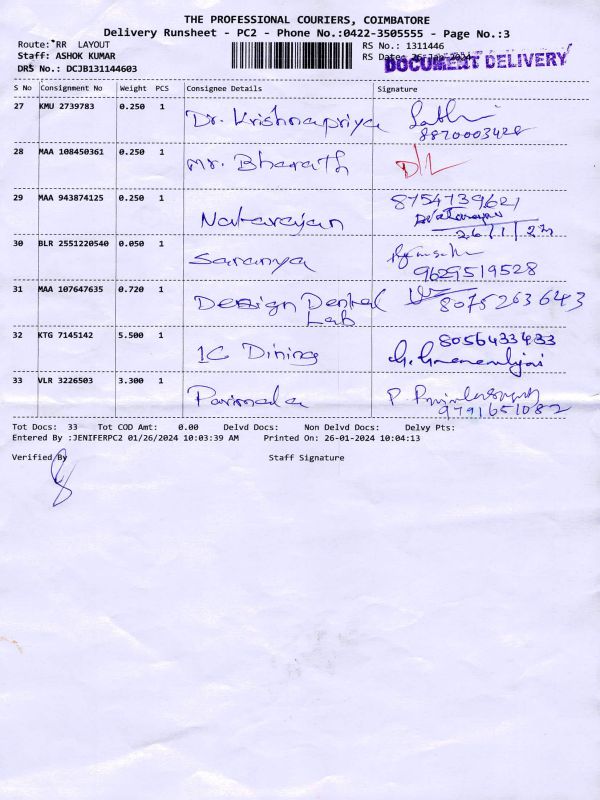 THE PROFESSIONAL COURIERS, COIMBATORE
Delivery Runsheet - PC2 - Phone No.:0422-3505555 - Page No.:3
Route: RR LAYOUT RS No.: 1311446
Staff: ASHOK KUMAR RS Date: 26-Jan-2024
DOCUMENT DELIVERY
DRS No.: DCJB131144603
S No Consignment No Weight PCS Consignee Details Signature
27 KMU 2739783 0.250 1 Dr. Krishnapriya
8870003428
28 MAA 108450361 0.250 1 Mr. Bharath D/L
29 MAA 943874125 0.250 1 Natarayan 8754739621
26/1/24
30 BLR 2551220540 0.050 1 Saranya
9629519528
31 MAA 107647635 0.720 1 Design Dental
Lab 8075263643
32 KTG 7145142 5.500 1 1C Dining 8056433433
33 VLR 3226503 3.300 1 Parimala
9791651082
Tot Docs: 33 Tot COD Amt: 0.00 Delvd Docs: Non Delvd Docs: Delvy Pts:
Entered By :JENIFERPC2 01/26/2024 10:03:39 AM Printed On: 26-01-2024 10:04:13
Verified By Staff Signature